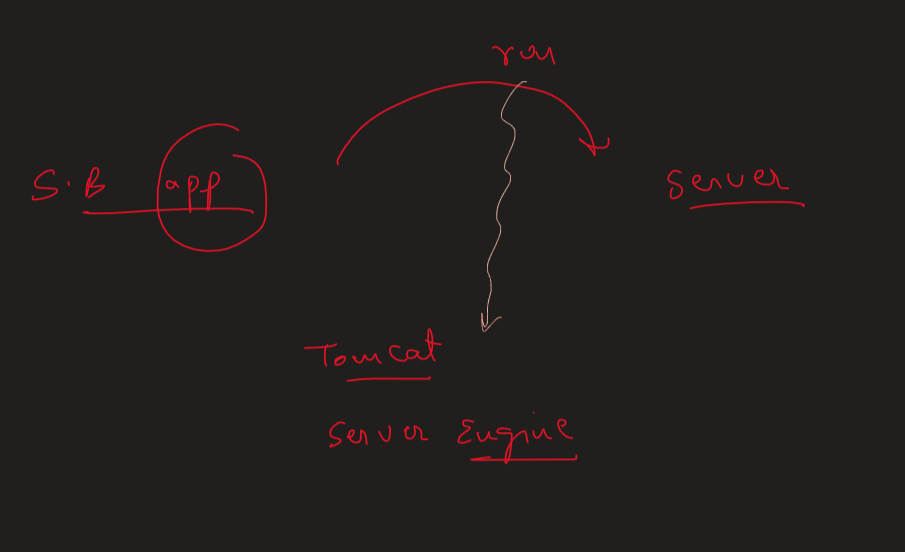 run
S.B app
Server
Tomcat
Server Engine